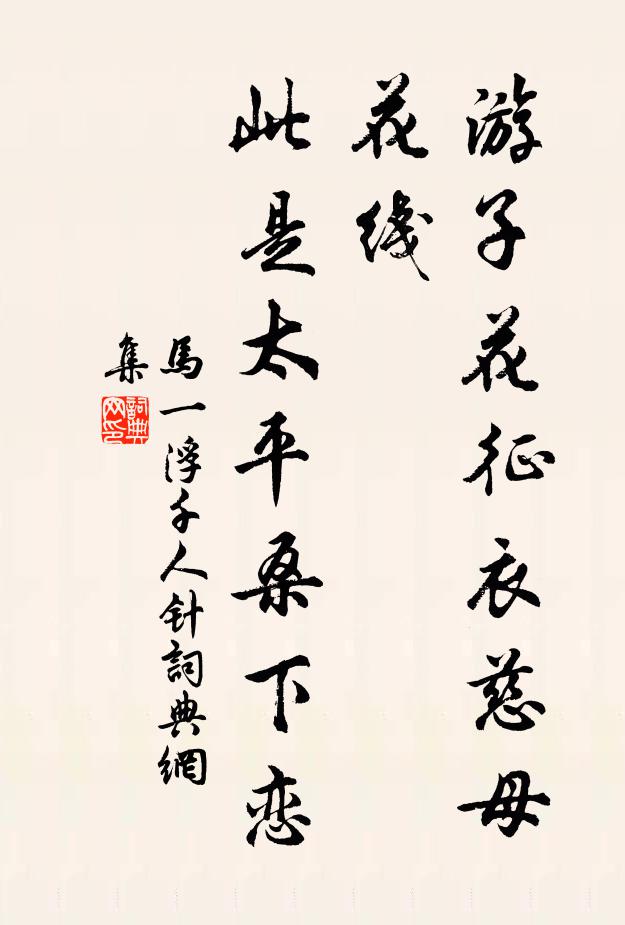 游子花征衣慈母
花线
此是太平桑下恋
馬一浮千人针詞典網
集
詞典
网印